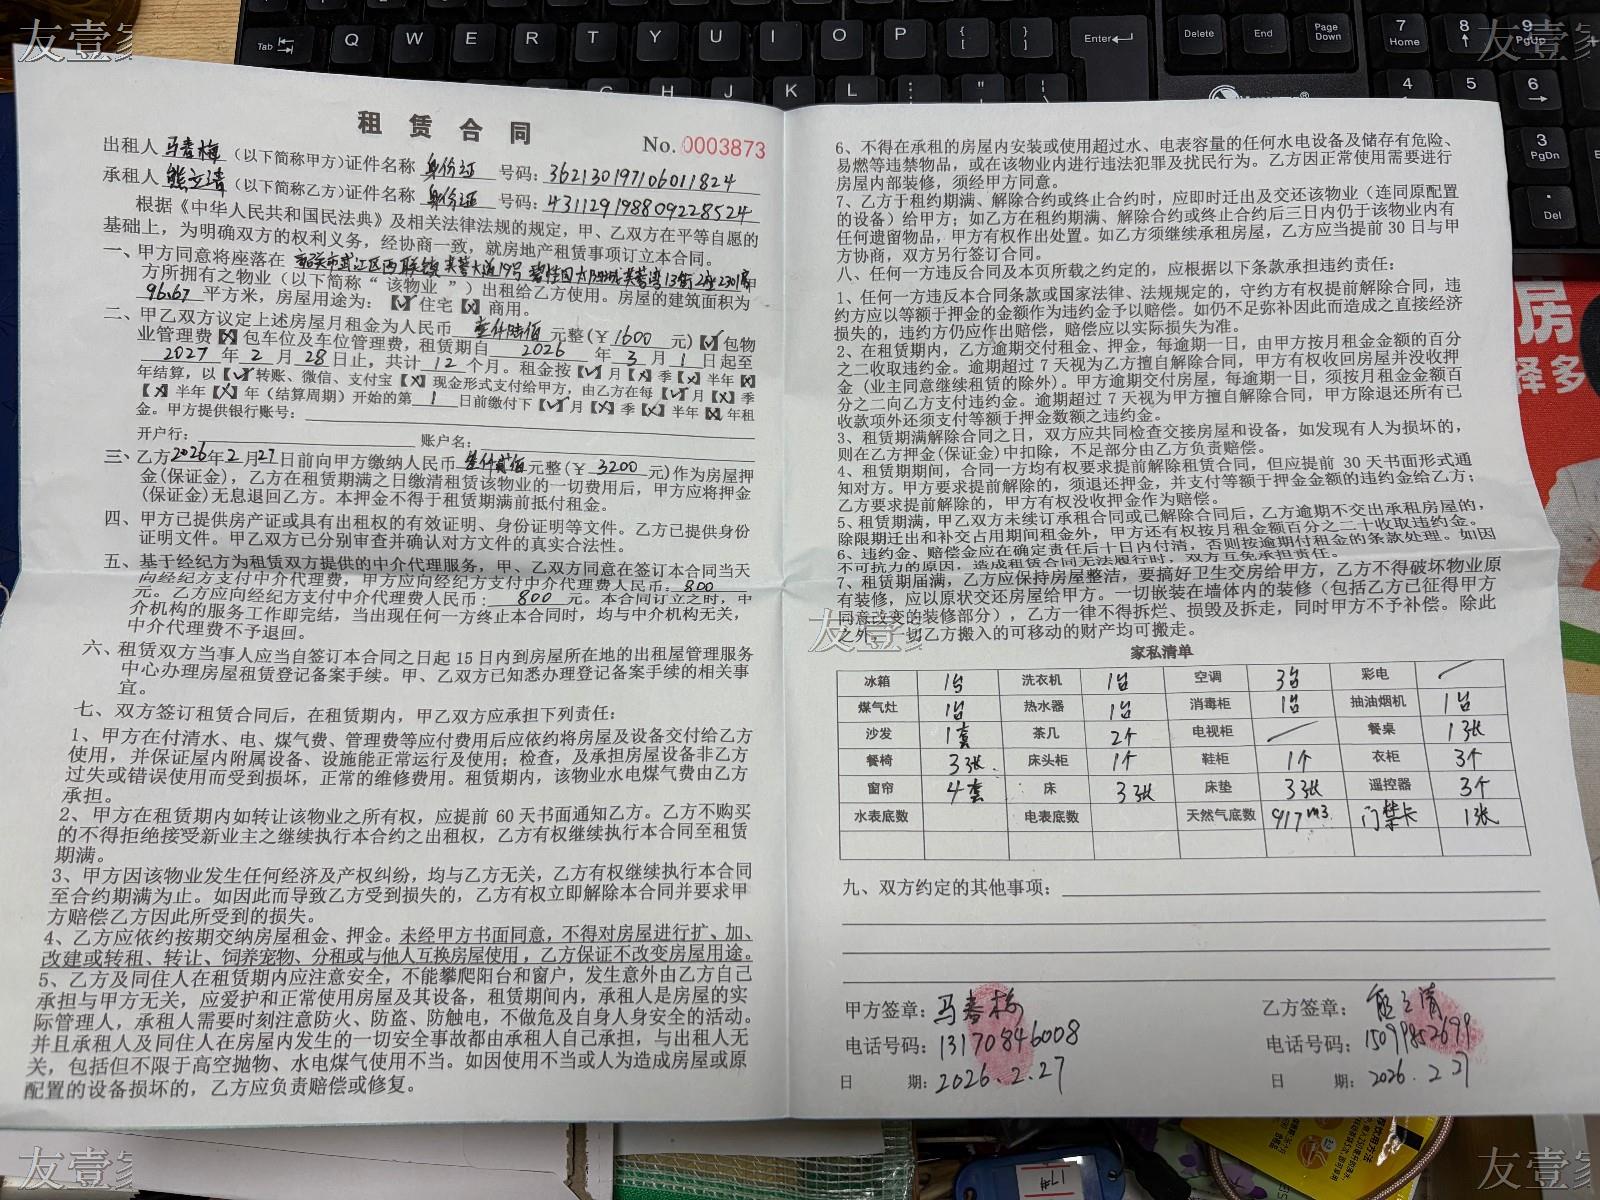 租赁合同
No. 0003873
出租人 马春梅 (以下简称甲方)证件名称 身份证 号码: 362130197106011824
承租人 熊立清 (以下简称乙方)证件名称 身份证 号码: 431129198809228524
根据《中华人民共和国民法典》及相关法律法规的规定,甲、乙双方在平等自愿的
基础上,为明确双方的权利义务,经协商一致,就房地产租赁事项订立本合同。
一、甲方同意将座落在 韶关市武江区西联镇芙蓉大道19号 碧桂园太阳城芙蓉湾13街2座2301房
方所拥有之物业(以下简称“该物业”)出租给乙方使用。房屋的建筑面积为
96.67 平方米,房屋用途为:【√】住宅【×】商用。
二、甲乙双方议定上述房屋月租金为人民币 壹仟陆佰 元整(¥ 1600 元)【√】包物
业管理费【×】包车位及车位管理费,租赁期自 2026 年 3 月 1 日起至
2027 年 2 月 28 日止,共计 12 个月。租金按【√】月【×】季【×】半年【×】
年结算,以【√】转账、微信、支付宝【×】现金形式支付给甲方,由乙方在每【√】月【×】季
【×】半年【×】年(结算周期)开始的第 1 日前缴付下【√】月【×】季【×】半年【×】年租
金。甲方提供银行账号:
开户行: 账户名:
三、乙方2026年2月27日前向甲方缴纳人民币 元整(¥ 3200 元)作为房屋押
金(保证金),乙方在租赁期满之日缴清租赁该物业的一切费用后,甲方应将押金
(保证金)无息退回乙方。本押金不得于租赁期满前抵付租金。
四、甲方已提供房产证或具有出租权的有效证明、身份证明等文件。乙方已提供身份
证明文件。甲乙双方已分别审查并确认对方文件的真实合法性。
五、基于经纪方为租赁双方提供的中介代理服务,甲、乙双方同意在签订本合同当天
向经纪方支付中介代理费,甲方应向经纪方支付中介代理费人民币: 800
元。乙方应向经纪方支付中介代理费人民币: 800 元。本合同订立之时,中
介机构的服务工作即完结,当出现任何一方终止本合同时,均与中介机构无关,
中介代理费不予退回。
六、租赁双方当事人应当自签订本合同之日起 15 日内到房屋所在地的出租屋管理服务
中心办理房屋租赁登记备案手续。甲、乙双方已知悉办理登记备案手续的相关事
宜。
七、双方签订租赁合同后,在租赁期内,甲乙双方应承担下列责任:
1、甲方在付清水、电、煤气费、管理费等应付费用后应依约将房屋及设备交付给乙方
使用,并保证屋内附属设备、设施能正常运行及使用;检查,及承担房屋设备非乙方
过失或错误使用而受到损坏,正常的维修费用。租赁期内,该物业水电煤气费由乙方
承担。
2、甲方在租赁期内如转让该物业之所有权,应提前 60 天书面通知乙方。乙方不购买
的不得拒绝接受新业主之继续执行本合约之出租权,乙方有权继续执行本合同至租赁
期满。
3、甲方因该物业发生任何经济及产权纠纷,均与乙方无关,乙方有权继续执行本合同
至合约期满为止。如因此而导致乙方受到损失的,乙方有权立即解除本合同并要求甲
方赔偿乙方因此所受到的损失。
4、乙方应依约按期交纳房屋租金、押金。未经甲方书面同意,不得对房屋进行扩、加、
改建或转租、转让、饲养宠物、分租或与他人互换房屋使用,乙方保证不改变房屋用途。
5、乙方及同住人在租赁期内应注意安全,不能攀爬阳台和窗户,发生意外由乙方自己
承担与甲方无关,应爱护和正常使用房屋及其设备,租赁期间内,承租人是房屋的实
际管理人,承租人需要时刻注意防火、防盗、防触电,不做危及自身人身安全的活动。
并且承租人及同住人在房屋内发生的一切安全事故都由承租人自己承担,与出租人无
关,包括但不限于高空抛物、水电煤气使用不当。如因使用不当或人为造成房屋或原
配置的设备损坏的,乙方应负责赔偿或修复。
6、不得在承租的房屋内安装或使用超过水、电表容量的任何水电设备及储存有危险、
易燃等违禁物品,或在该物业内进行违法犯罪及扰民行为。乙方因正常使用需要进行
房屋内部装修,须经甲方同意。
7、乙方于租约期满、解除合约或终止合约时,应即时迁出及交还该物业(连同原配置
的设备)给甲方;如乙方在租约期满、解除合约或终止合约后三日内仍于该物业内有
任何遗留物品,甲方有权作出处置。如乙方须继续承租房屋,乙方应当提前 30 日与甲
方协商,双方另行签订合同。
八、任何一方违反合同及本页所载之约定的,应根据以下条款承担违约责任:
1、任何一方违反本合同条款或国家法律、法规规定的,守约方有权提前解除合同,违
约方应以等额于押金的金额作为违约金予以赔偿。如仍不足弥补因此而造成之直接经济
损失的,违约方仍应作出赔偿,赔偿应以实际损失为准。
2、在租赁期内,乙方逾期交付租金、押金,每逾期一日,由甲方按月租金金额的百分
之二收取违约金。逾期超过 7 天视为乙方擅自解除合同,甲方有权收回房屋并没收押
金(业主同意继续租赁的除外)。甲方逾期交付房屋,每逾期一日,须按月租金金额百
分之二向乙方支付违约金。逾期超过 7 天视为甲方擅自解除合同,甲方除退还所有已
收款项外还须支付等额于押金数额之违约金。
3、租赁期满解除合同之日,双方应共同检查交接房屋和设备,如发现有人为损坏的,
则在乙方押金(保证金)中扣除,不足部分由乙方负责赔偿。
4、租赁期期间,合同一方均有权要求提前解除租赁合同,但应提前 30 天书面形式通
知对方。甲方要求提前解除的,须退还押金,并支付等额于押金金额的违约金给乙方;
乙方要求提前解除的,甲方有权没收押金作为赔偿。
5、租赁期满,甲乙双方未续订承租合同或已解除合同后,乙方逾期不交出承租房屋的,
除限期迁出和补交占用期间租金外,甲方还有权按月租金额百分之二十收取违约金。
6、违约金、赔偿金应在确定责任后十日内付清,否则按逾期付租金的条款处理。如因
不可抗力的原因,造成租赁合同无法履行时,双方互免承担责任。
7、租赁期届满,乙方应保持房屋整洁,要搞好卫生交房给甲方,乙方不得破坏物业原
有装修,应以原状交还房屋给甲方。一切嵌装在墙体内的装修(包括乙方已征得甲方
同意改变的装修部分),乙方一律不得拆烂、损毁及拆走,同时甲方不予补偿。除此
之外,一切乙方搬入的可移动的财产均可搬走。
家私清单
冰箱 1台 洗衣机 1台 空调 3台 彩电 /
煤气灶 1台 热水器 1台 消毒柜 1台 抽油烟机 1台
沙发 1套 茶几 2个 电视柜 / 餐桌 1张
餐椅 3张 床头柜 1个 鞋柜 1个 衣柜 3个
窗帘 4套 床 3张 床垫 3张 遥控器 3个
水表底数 电表底数 天然气底数 917m3 门禁卡 1张
九、双方约定的其他事项:
甲方签章: 马春梅
电话号码: 13170846008
日 期: 2026.2.27
乙方签章: 熊立清
电话号码: 15099852699
日 期: 2026.2.27
友壹家
Tab
Q W E R T Y U I O P
Enter
Delete End Page Down
7 Home 8 9 PgUp
4 5 6
3 PgDn
Del
G H J K L
房
择多
17#